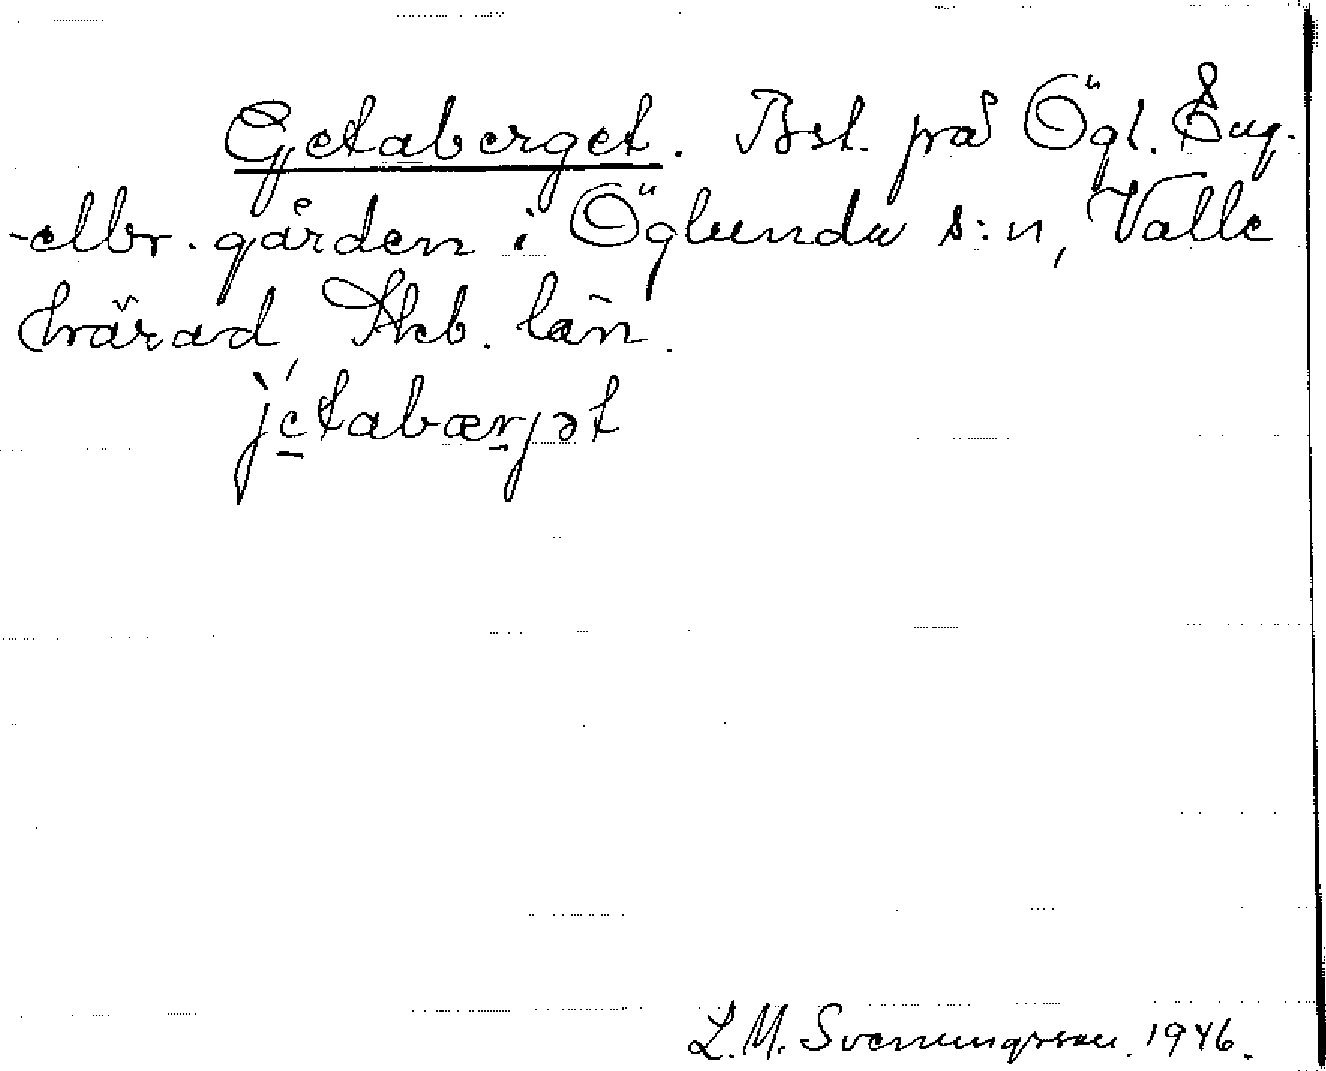 Getaberget. Bst. på Ögl. Eng-
-elbr. gården i Öglunda s:n, Valle
härad, Skb. län.
jetabærjət
L.M. Svenungsson. 1946.